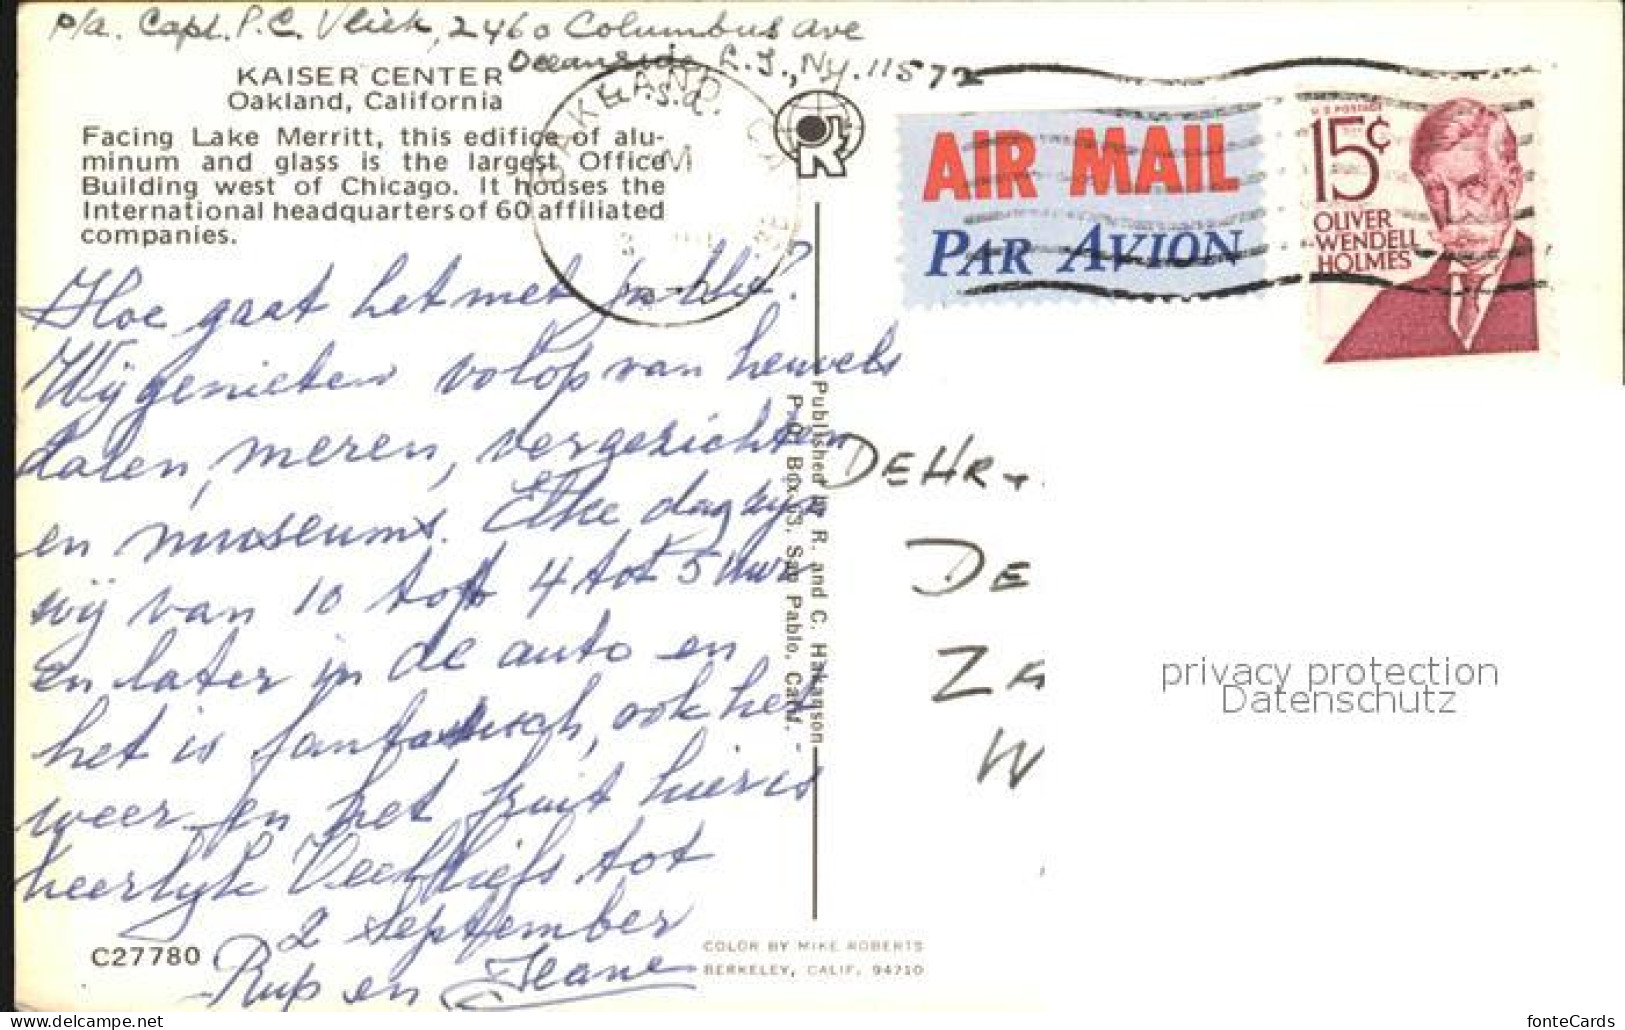 p/a. Capt. P.C. Vliek, 2460 Columbus ave
Oceanside L.I., Ny. 11572
U.S.A.
KAISER CENTER
Oakland, California
Facing Lake Merritt, this edifice of alu-
minum and glass is the largest Office
Building west of Chicago. It houses the
International headquarters of 60 affiliated
companies.
OAKLAND, CA
AIR MAIL
PAR AVION
U.S. POSTAGE
15¢
OLIVER
WENDELL
HOLMES
Hoe gaat het met jullie?
Wij genieten volop van heuvels
dalen, meren, vergezichten
en museums. Elke dag zijn
wij van 10 tot 4 tot 5 uur
en later in de auto en
het is fantastisch, ook het
weer en het fruit hier is
heerlijk Veel liefs tot
2 september
Rup en Jeane
Published by R. and C. Hakanson
P.O. Box 33, San Pablo, Calif.
DE HR
DE
ZA
W
privacy protection
Datenschutz
C27780
COLOR BY MIKE ROBERTS
BERKELEY, CALIF. 94710
www.delcampe.net
fonteCards